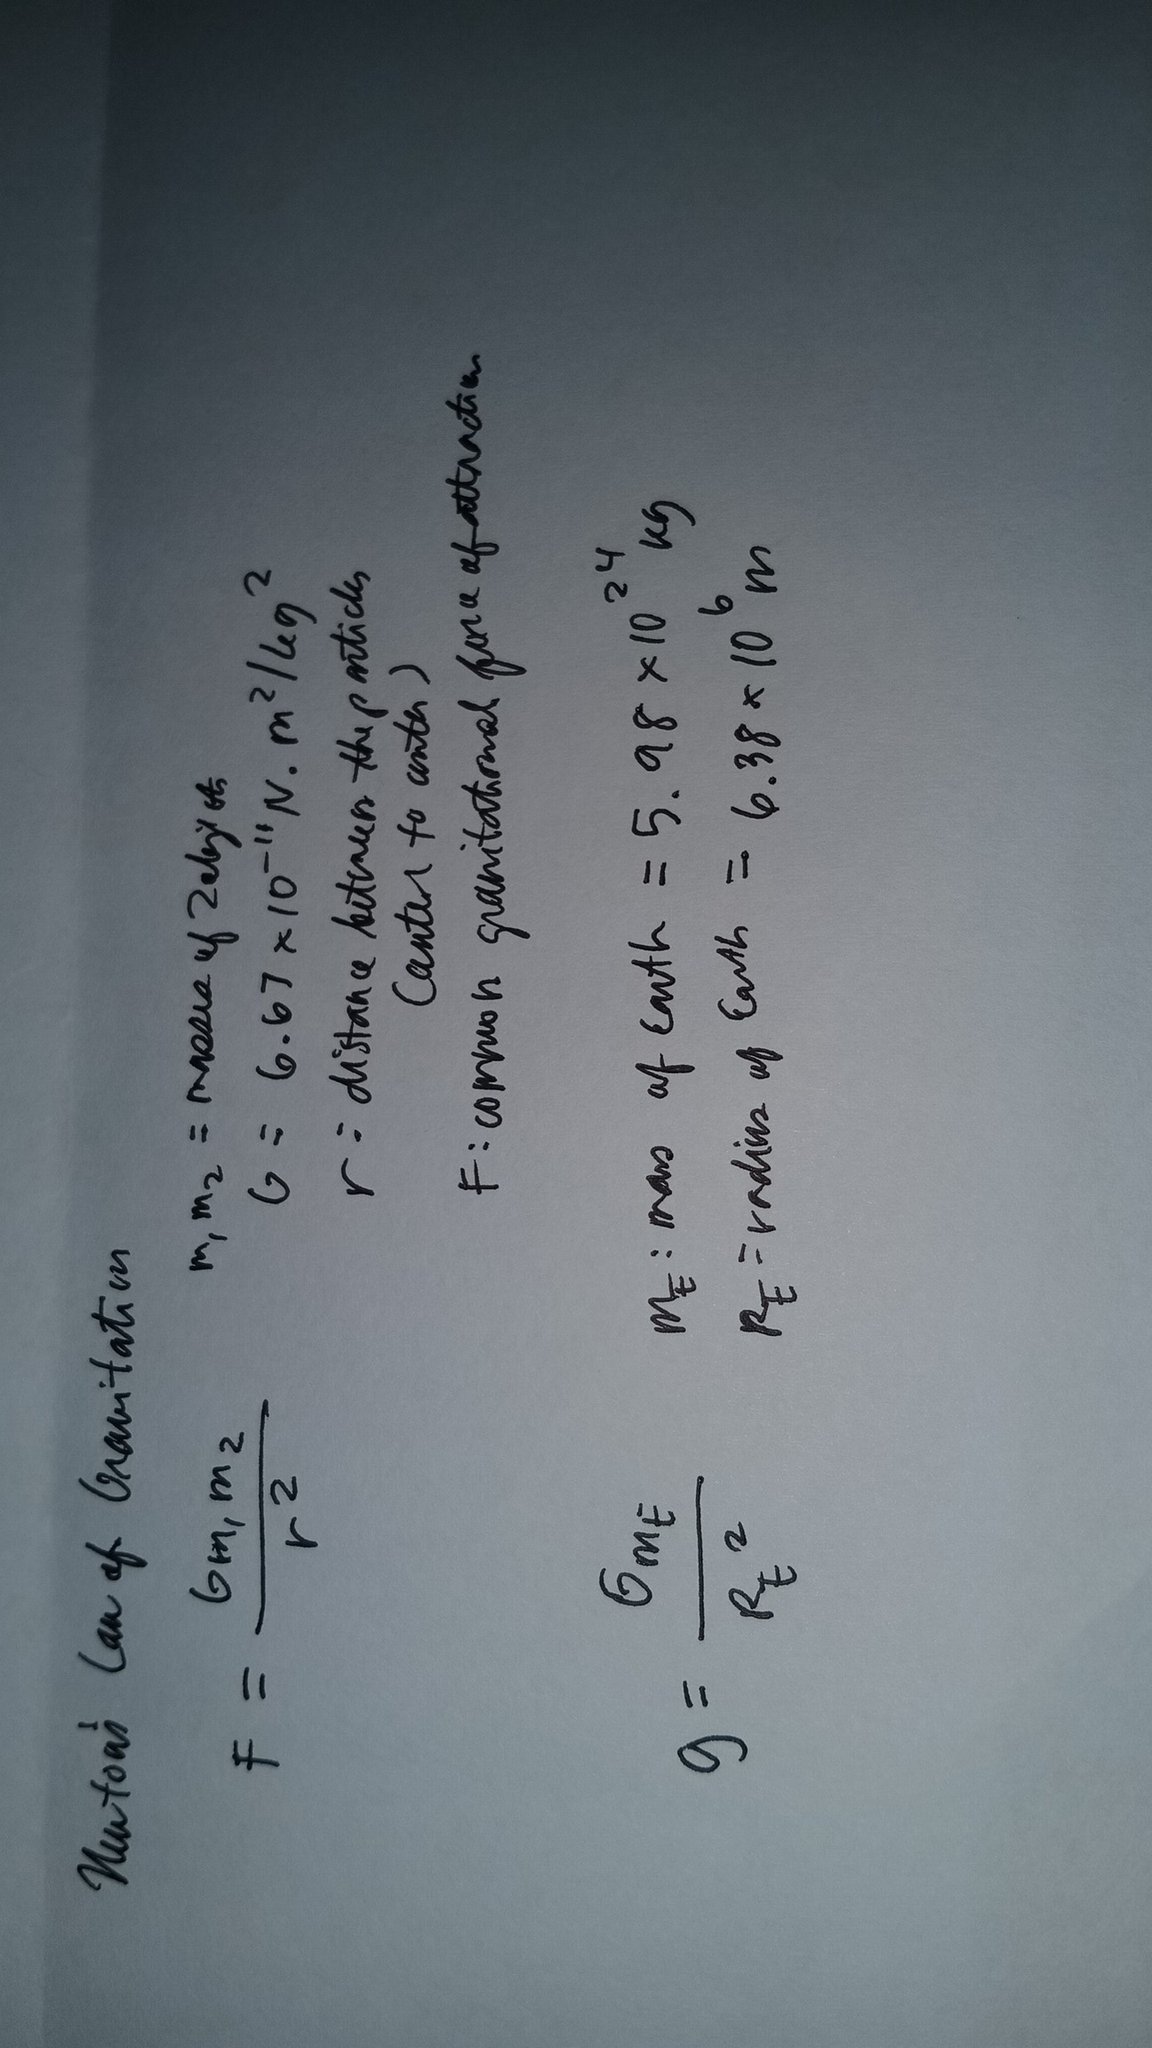 Newton's Law of Gravitation
F = Gm₁m₂ / r²
m₁m₂ = masses of 2 objects
G = 6.67 × 10⁻¹¹ N.m²/kg²
r = distance between the particles
(center to center)
F: common gravitational force of attraction
g = GmE / RE²
mE: mass of Earth = 5.98 × 10²⁴ kg
RE = radius of Earth = 6.38 × 10⁶ m